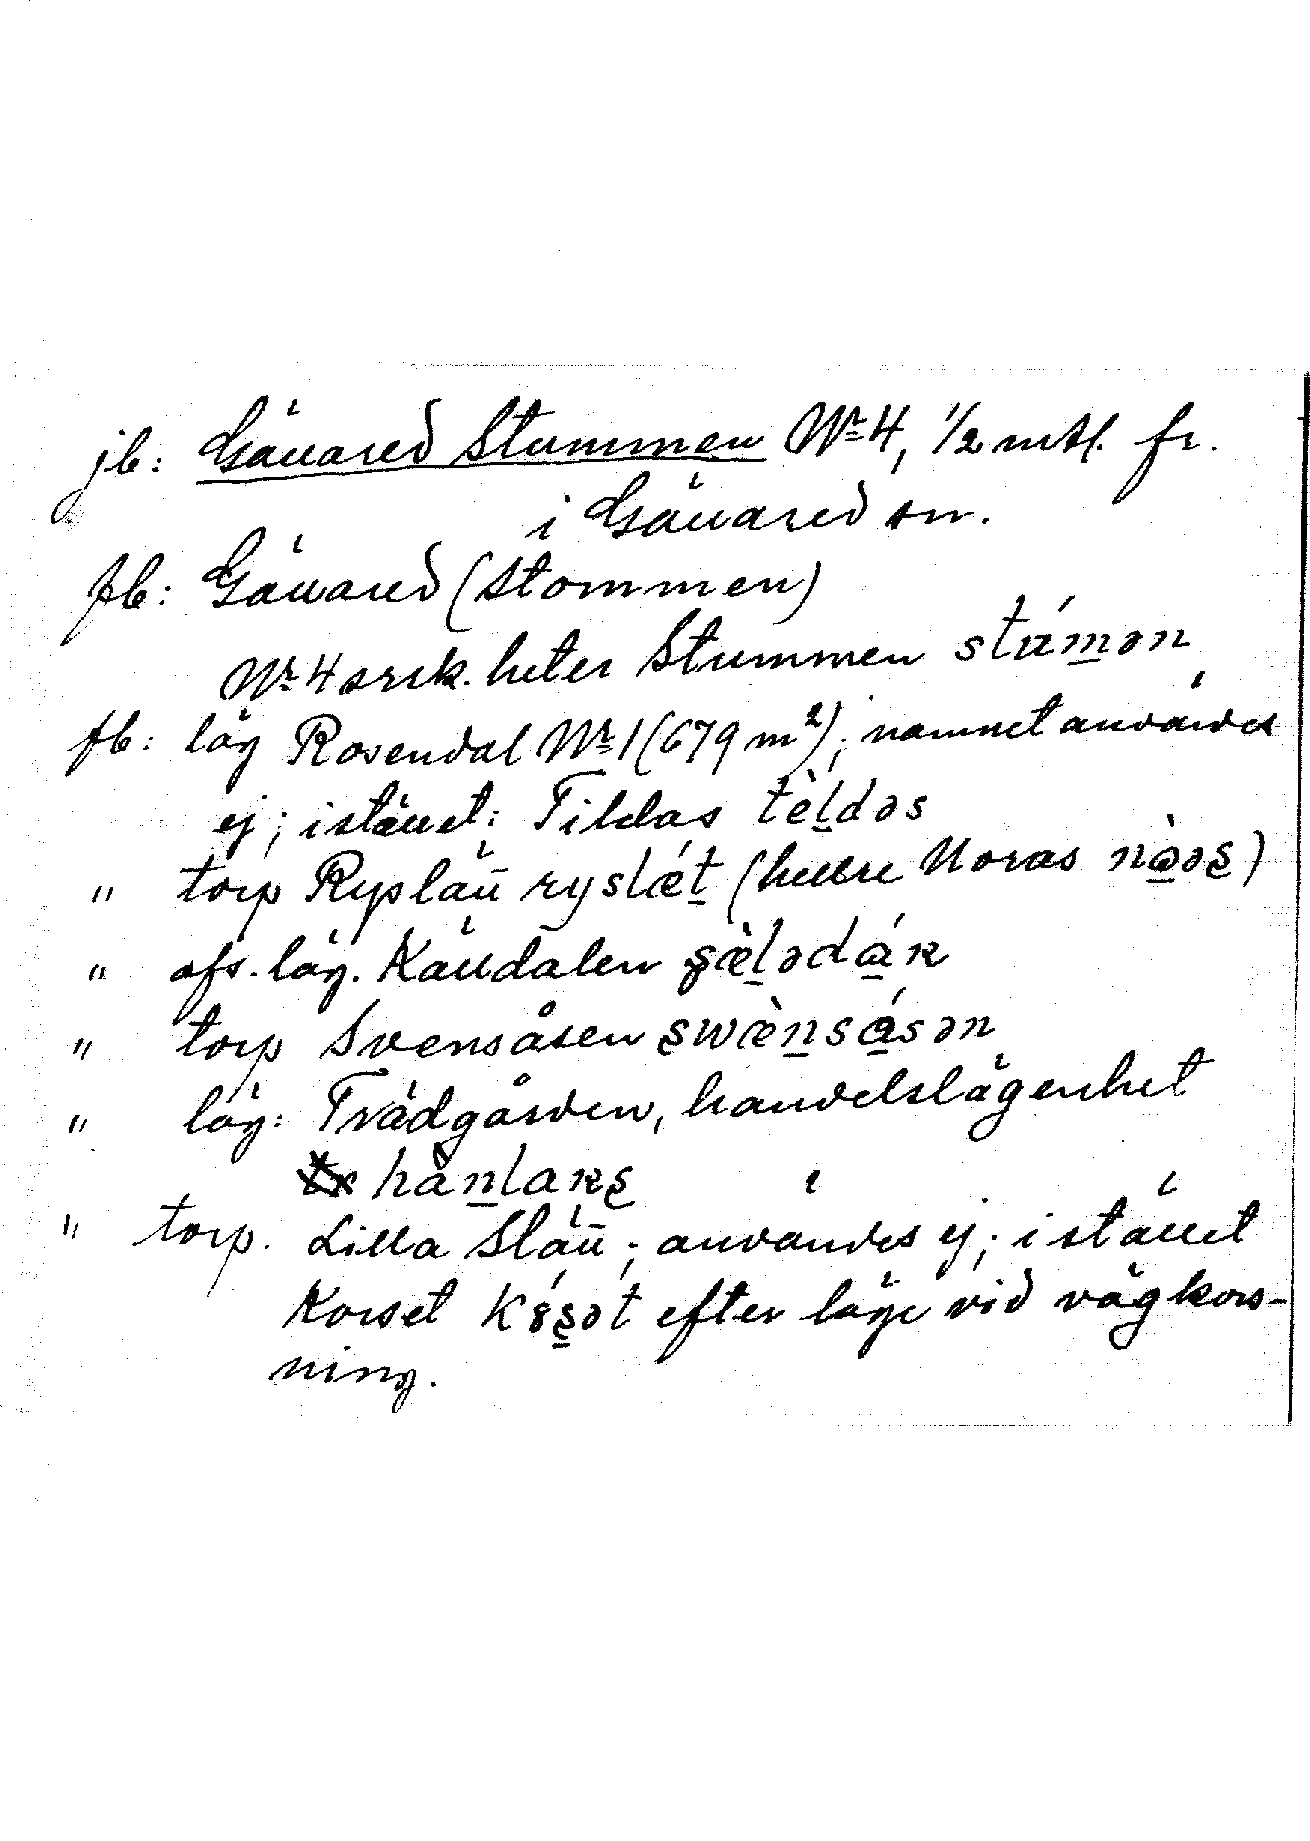 jb: Gällared Stummen Nr 4, 1/2 mtl. fr.
i Gällared sn.
fb: Gällared (Stommen)
Nr 4 srsk. heter Stummen stúmən
fb: läg Rosendal Nr 1 (679 m²); namnet användes
ej; istället: Tildas tèldəs
" torp Ryslätt ryslǽt (hellre Noras nàəs)
" afs. läg. Källdalen
" torp Svensåsen swæ̀nsásən
" läg: Trädgården, handelslägenhet
hànlaʀs
" torp. Lilla Slätt; användes ej; istället
Korset kɞ́sət efter läge vid vägkors-
ning.